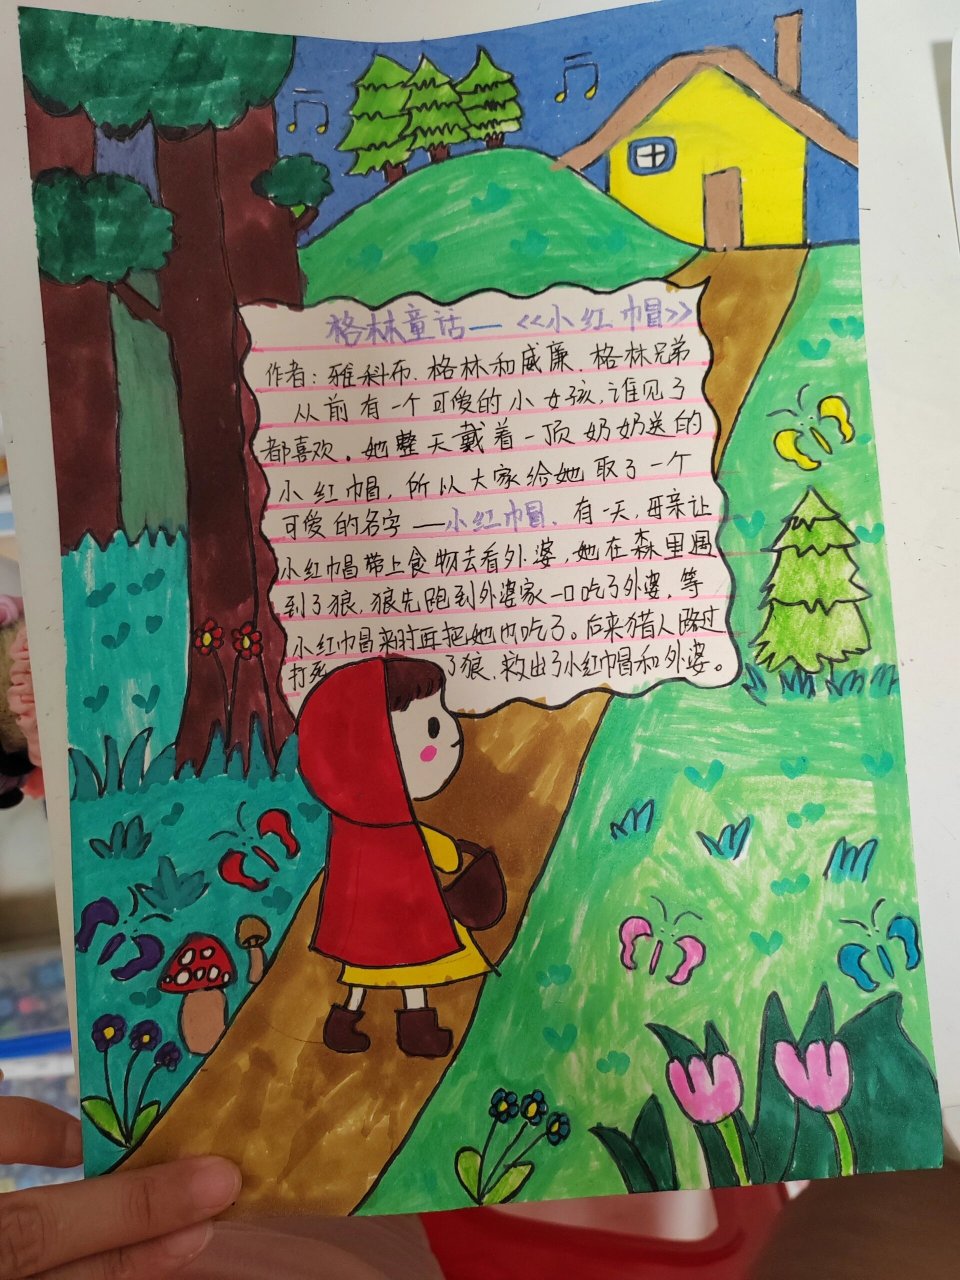 格林童话—《小红巾冒》
作者：雅科布、格林和威廉、格林兄弟
从前有一个可爱的小女孩，谁见了
都喜欢。她整天戴着一顶奶奶送的
小红巾冒，所以大家给她取了一个
可爱的名字—小红巾冒、有一天，母亲让
小红巾冒带上食物去看外婆，她在森里遇
到了狼，狼先跑到外婆家一口吃了外婆，等
小红巾冒来时再把她也吃了。后来猎人路过
打死 了狼，救出了小红巾冒和外婆。